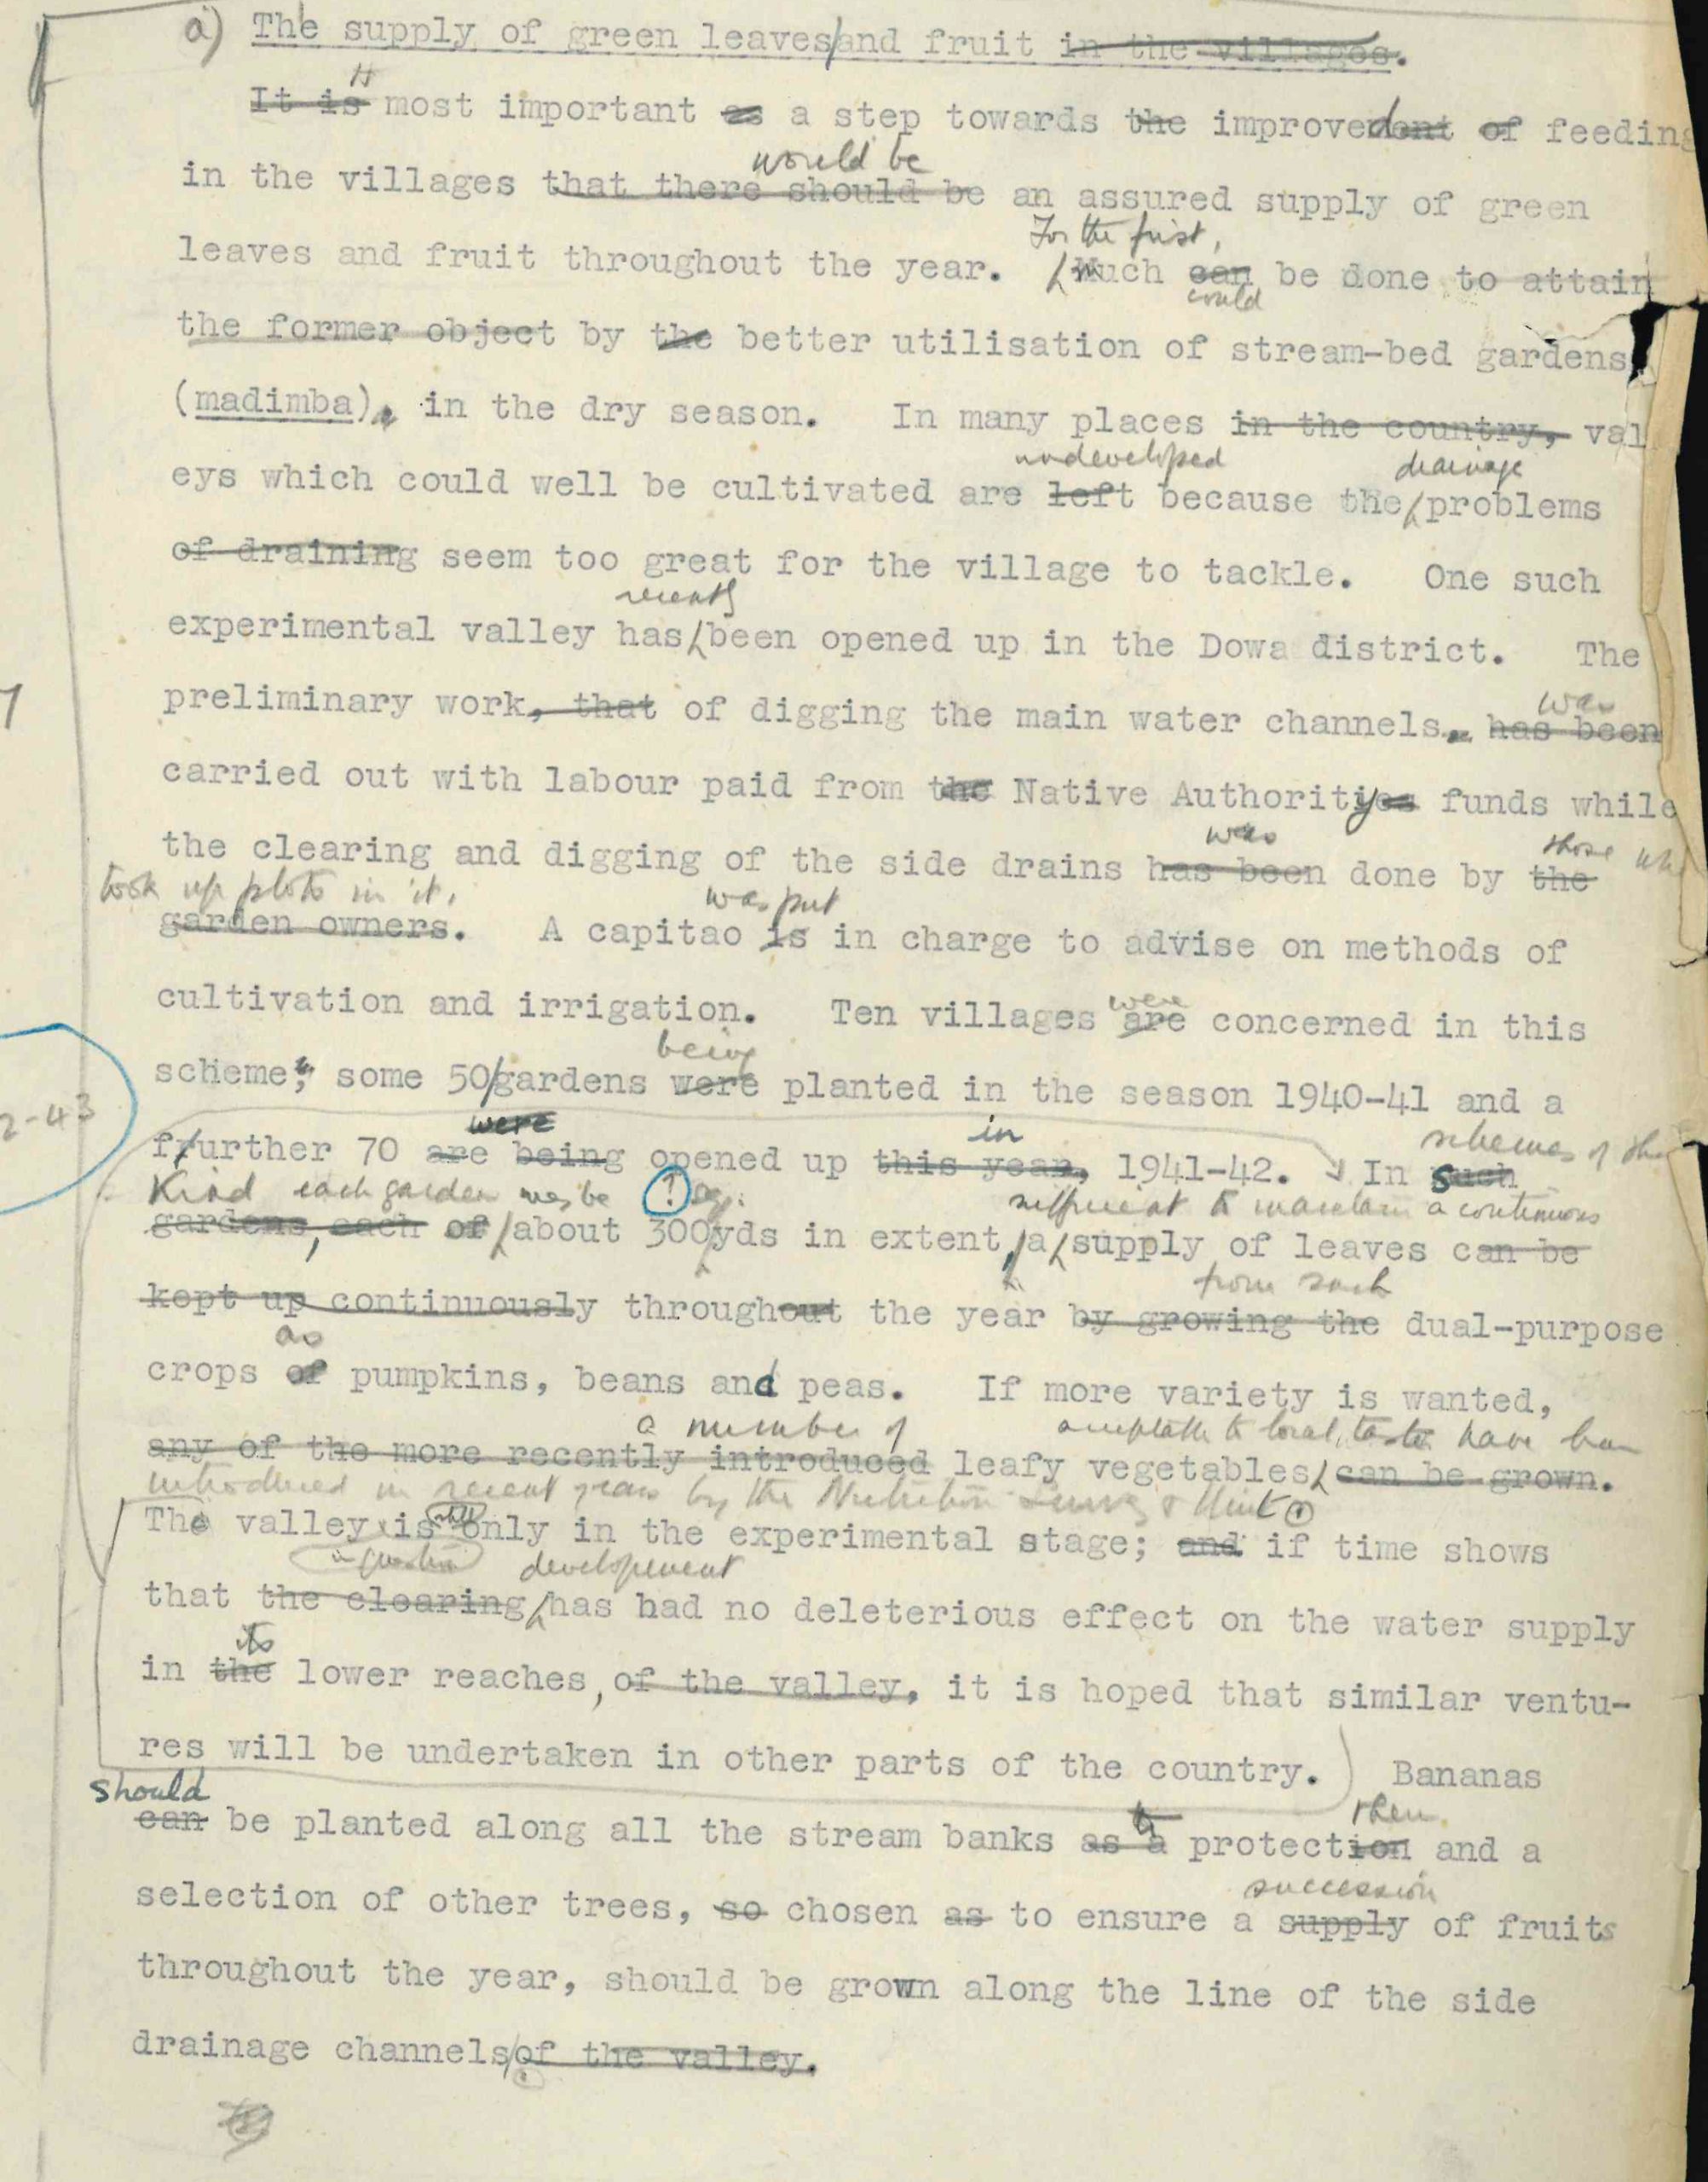 a) The supply of green leaves/and fruit in the villages.
It is most important as a step towards the improvement of feeding
would be
in the villages that there should be an assured supply of green
For the first,
leaves and fruit throughout the year. Much can be done to attain
could
the former object by the better utilisation of stream-bed gardens
(madimba), in the dry season. In many places in the country, val
undeveloped drainage
eys which could well be cultivated are left because the problems
of draining seem too great for the village to tackle. One such
recently
experimental valley has been opened up in the Dowa district. The
preliminary work, that of digging the main water channels, has been
was
carried out with labour paid from the Native Authorityes funds while
was those who
the clearing and digging of the side drains has been done by the
took up plots in it.
was put
garden owners. A capitao is in charge to advise on methods of
were
cultivation and irrigation. Ten villages are concerned in this
being
scheme; some 50/gardens were planted in the season 1940-41 and a
2-43
were in schemes of this
f/urther 70 are being opened up this year, 1941-42. In such
Kind each garden may be ? sq. sufficient to maintain a continuous
gardens, each of about 300yds in extent, a supply of leaves can be
from such
kept up continuously throughout the year by growing the dual-purpose
as
crops of pumpkins, beans and peas. If more variety is wanted,
a number of acceptable to local taste have been
any of the more recently introduced leafy vegetables can be grown.
introduced in recent years by the Nutrition Survey & Unit
The valley is still only in the experimental stage; and if time shows
in question development
that the clearing has had no deleterious effect on the water supply
its
in the lower reaches, of the valley, it is hoped that similar ventu-
res will be undertaken in other parts of the country. Bananas
should to them
can be planted along all the stream banks as a protection and a
succession
selection of other trees, so chosen as to ensure a supply of fruits
throughout the year, should be grown along the line of the side
drainage channels/of the valley.